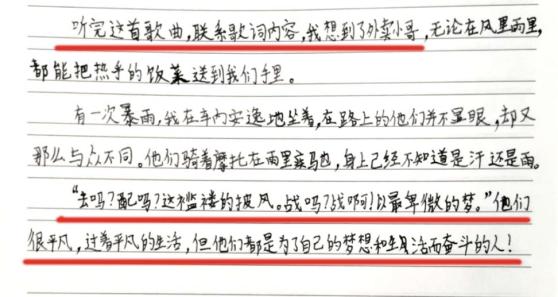 听完这首歌曲,联系歌词内容,我想到了外卖小哥,无论在风里雨里,
都能把热乎的饭菜送到我们手里。
有一次暴雨,我在车内安逸地坐着,在路上的他们并不显眼,却又
那么与众不同。他们骑着摩托在雨里奔驰,身上已经不知道是汗还是雨。
“去吗?配吗?这褴褛的披风。战吗?战啊!以最卑微的梦。”他们
很平凡,过着平凡的生活,但他们都是为了自己的梦想和生活而奋斗的人!